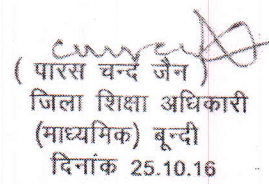 ( पारस चन्द जैन )
जिला शिक्षा अधिकारी
(माध्यमिक) बून्दी
दिनांक 25.10.16